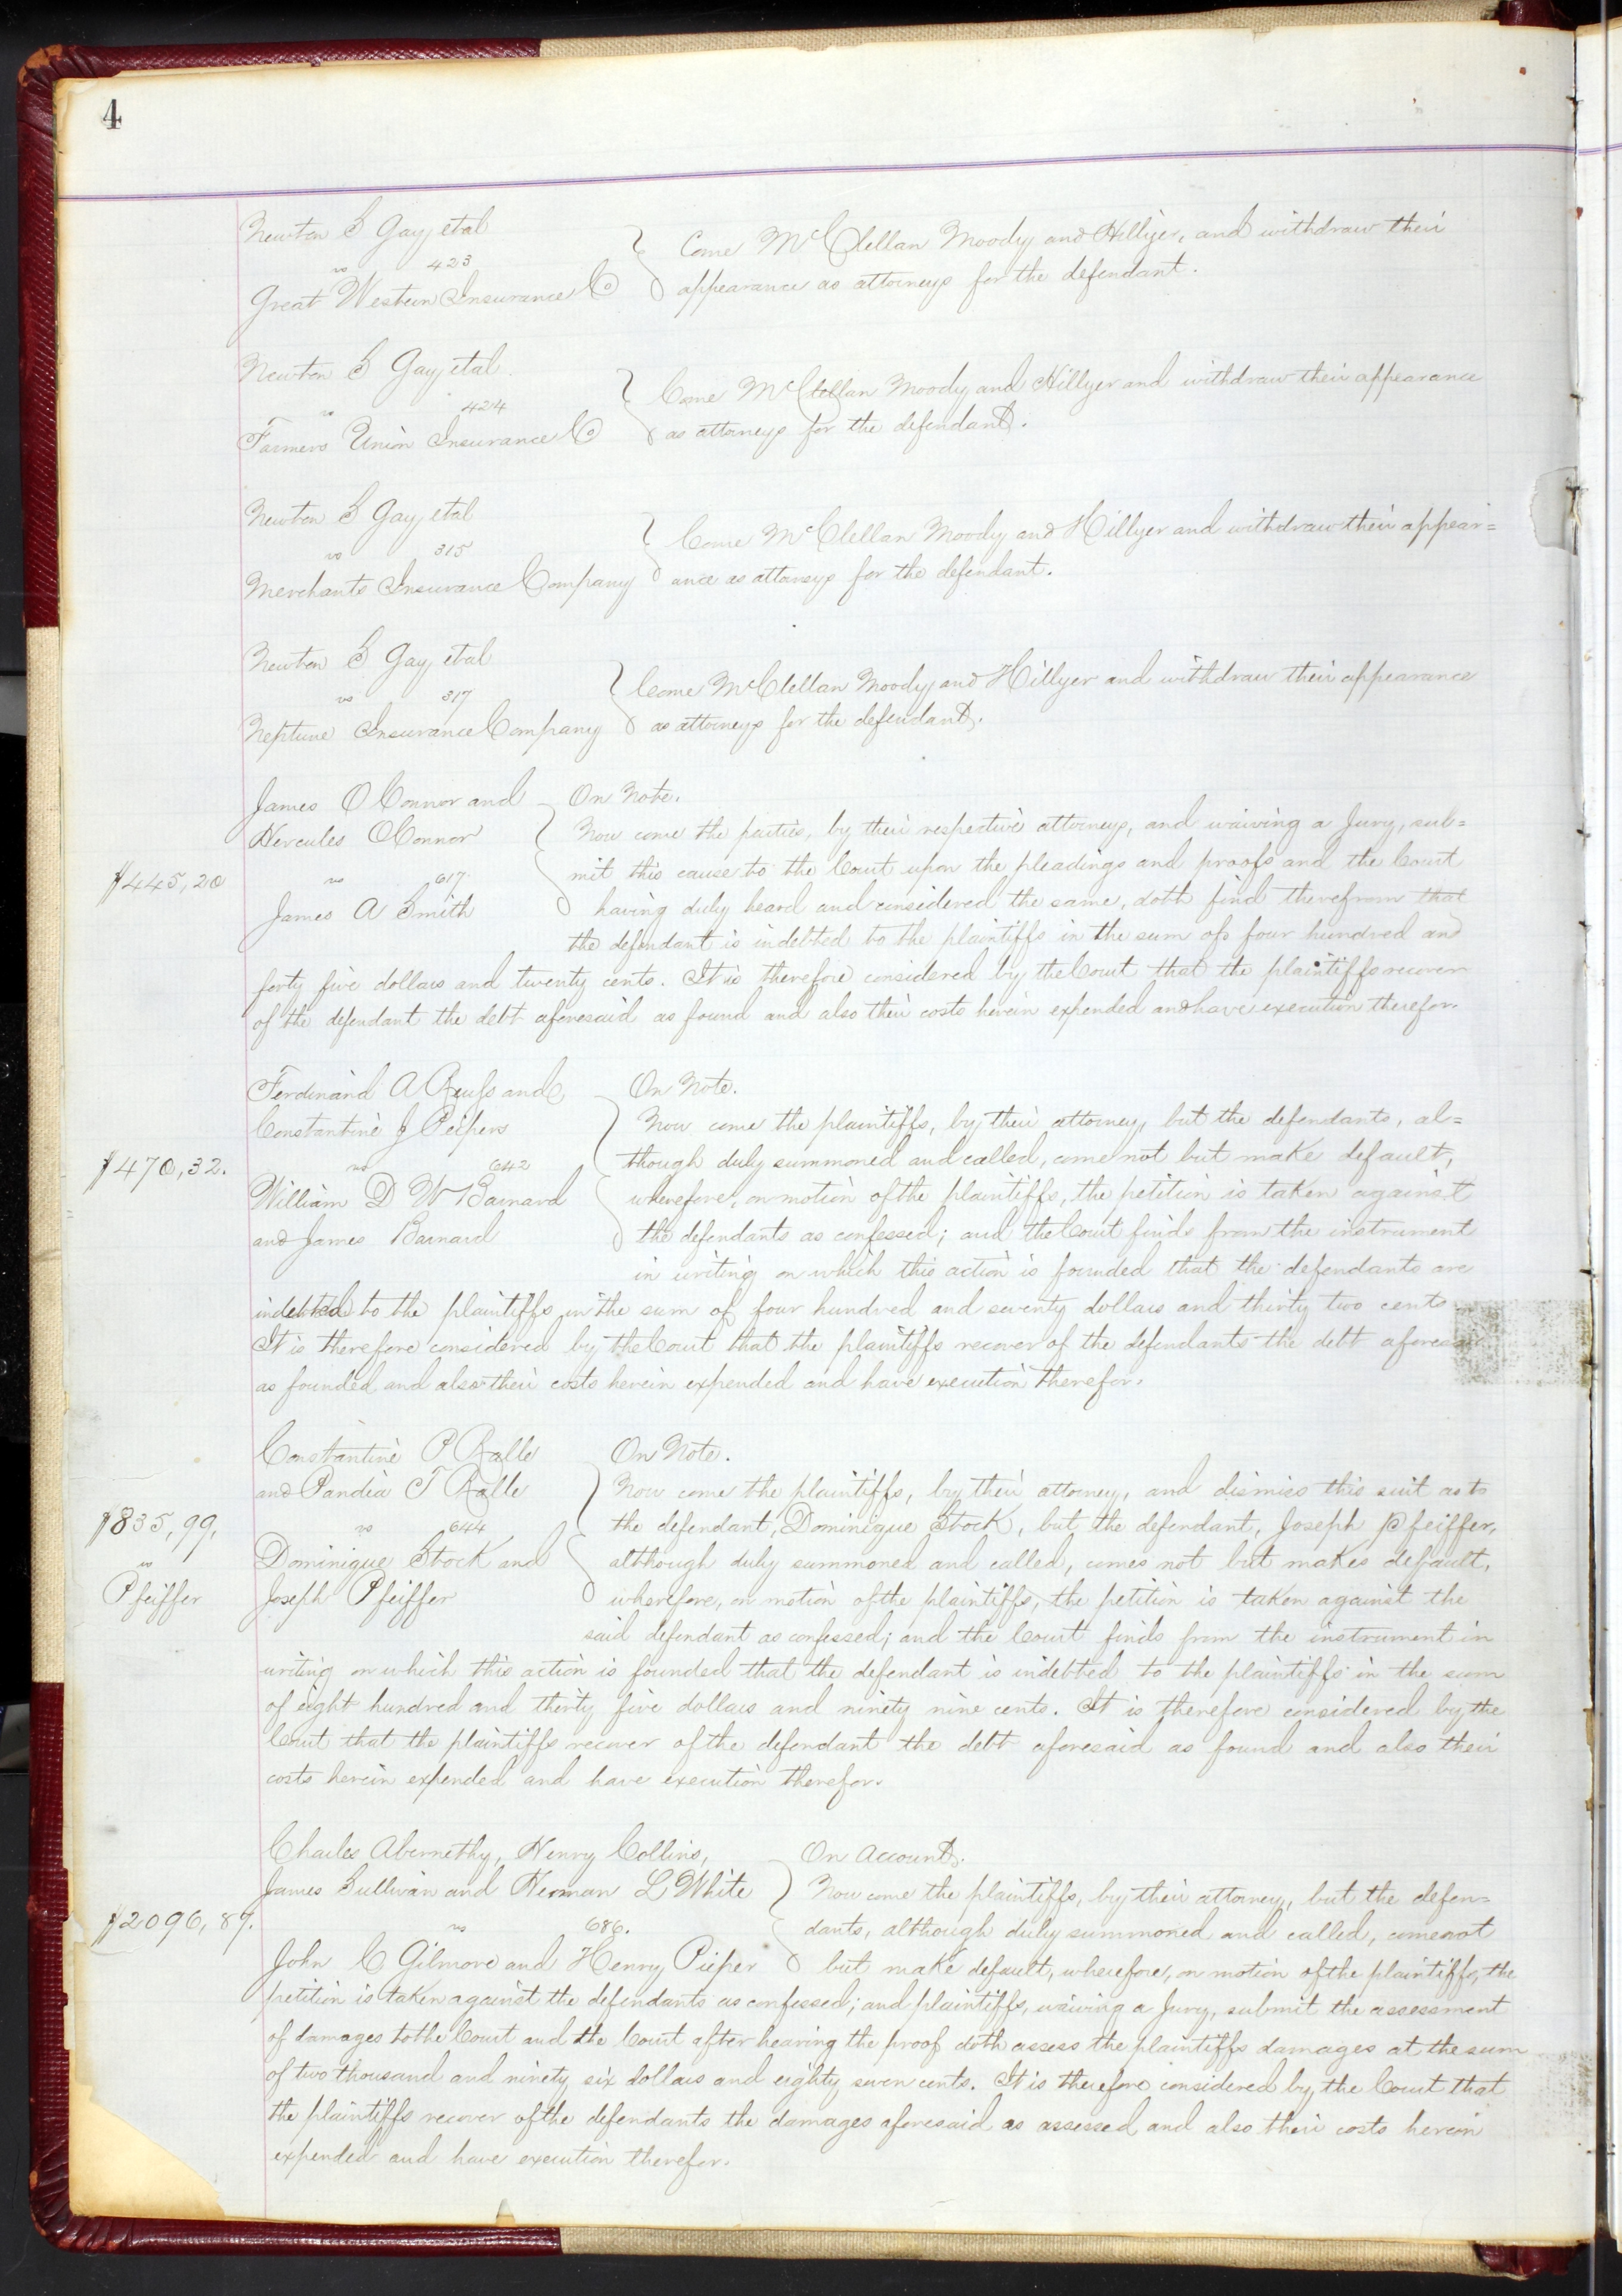 4
Newton S Gay et al
vs 423
Great Western Insurance Co
Come McClellan Moody and Hillyer, and withdraw their
appearance as attorneys for the defendant.
Newton S Gay et al.
vs 424
Farmers Union Insurance Co
Come McClellan Moody and Hillyer and withdraw their appearance
as attorneys for the defendant.
Newton S Gay et al
vs 315
Merchants Insurance Company
Come McClellan Moody and Hillyer and withdraw their appear=
ance as attorneys for the defendant.
Newton S Gay et al
vs 317
Neptune Insurance Company
Come McClellan Moody and Hillyer and withdraw their appearance
as attorneys for the defendant.
James O Connor and
Hercules O Connor
vs 617.
James A Smith
$445,20
On Note.
Now come the parties, by their respective attorneys, and waiving a Jury, sub=
mit this cause to the Court upon the pleadings and proofs and the Court
having duly heard and considered the same, doth find therefrom that
the defendant is indebted to the plaintiffs in the sum of four hundred and
forty five dollars and twenty cents. It is therefore considered by the Court that the plaintiffs recover
of the defendant the debt aforesaid as found and also their costs herein expended and have execution therefor.
Ferdinand A Reuss and
Constantine J Peipers
vs 642
William D W Barnard
and James Barnard
$470,32.
On Note.
Now come the plaintiffs, by their attorney, but the defendants, al=
though duly summoned and called, come not but make default,
wherefore, on motion of the plaintiffs, the petition is taken against
the defendants as confessed; and the Court finds from the instrument
in writing on which this action is founded that the defendants are
indebted to the plaintiffs in the sum of four hundred and seventy dollars and thirty two cents.
It is therefore considered by the Court that the plaintiffs recover of the defendants the debt aforesaid
as founded and also their costs herein expended and have execution therefor.
Constantine P Ralle
and Pandia T Ralle
vs 644
Dominique Stock and
Joseph Pfeiffer
$835,99,
vs
Pfeiffer
On Note.
Now come the plaintiffs, by their attorney, and dismiss this suit as to
the defendant, Dominique Stock, but the defendant, Joseph Pfeiffer,
although duly summoned and called, comes not but makes default,
wherefore, on motion of the plaintiffs, the petition is taken against the
said defendant as confessed; and the Court finds from the instrument in
writing on which this action is founded that the defendant is indebted to the plaintiffs in the sum
of eight hundred and thirty five dollars and ninety nine cents. It is therefore considered by the
Court that the plaintiffs recover of the defendant the debt aforesaid as found and also their
costs herein expended and have execution therefor.
Charles Abernethy, Henry Collins,
James Sullivan and Herman L White
vs 686.
John C Gilmore and Henry Pieper
$2096,87.
On Account.
Now come the plaintiffs, by their attorney, but the defen=
dants, although duly summoned and called, come not
but make default, wherefore, on motion of the plaintiffs, the
petition is taken against the defendants as confessed; and plaintiffs, waiving a Jury, submit the assessment
of damages to the Court and the Court after hearing the proof doth assess the plaintiffs damages at the sum
of two thousand and ninety six dollars and eighty seven cents. It is therefore considered by the Court that
the plaintiffs recover of the defendants the damages aforesaid as assessed and also their costs herein
expended and have execution therefor.